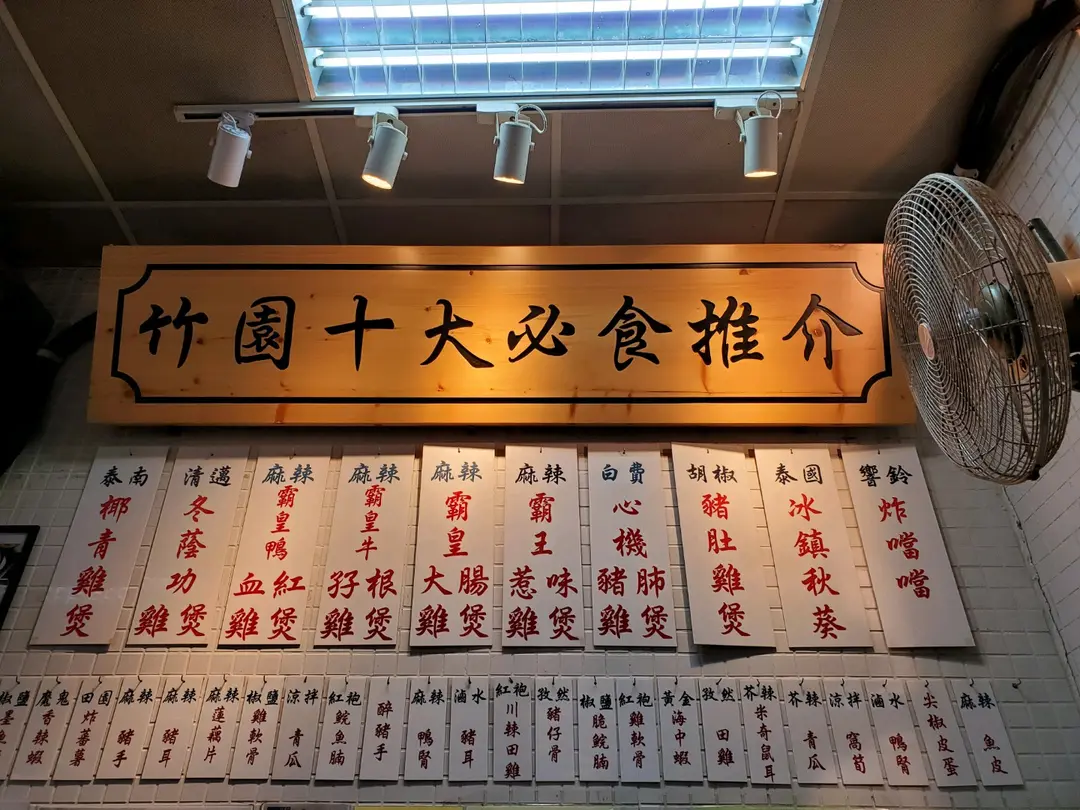 竹園十大必食推介
泰南椰青雞煲
清邁冬蔭功雞煲
麻辣霸皇鴨血紅雞煲
麻辣霸皇牛孖根雞煲
麻辣霸皇大腸雞煲
麻辣霸王惹味雞煲
白費心機豬肺雞煲
胡椒豬肚雞煲
泰國冰鎮秋葵
響鈴炸噹噹
椒鹽墨魚
魔鬼香辣蝦
田園炸蕃薯
麻辣豬手
麻辣豬耳
麻辣蓮藕片
椒鹽雞軟骨
涼拌青瓜
紅袍鯇魚腩
醉豬手
麻辣鴨腎
滷水豬耳
紅袍川辣田雞
孜然豬仔骨
椒鹽脆鯇腩
紅袍雞軟骨
黃金海中蝦
孜然田雞
芥辣米奇鼠耳
芥辣青瓜
涼拌窩筍
滷水鴨腎
尖椒皮蛋
麻辣魚皮